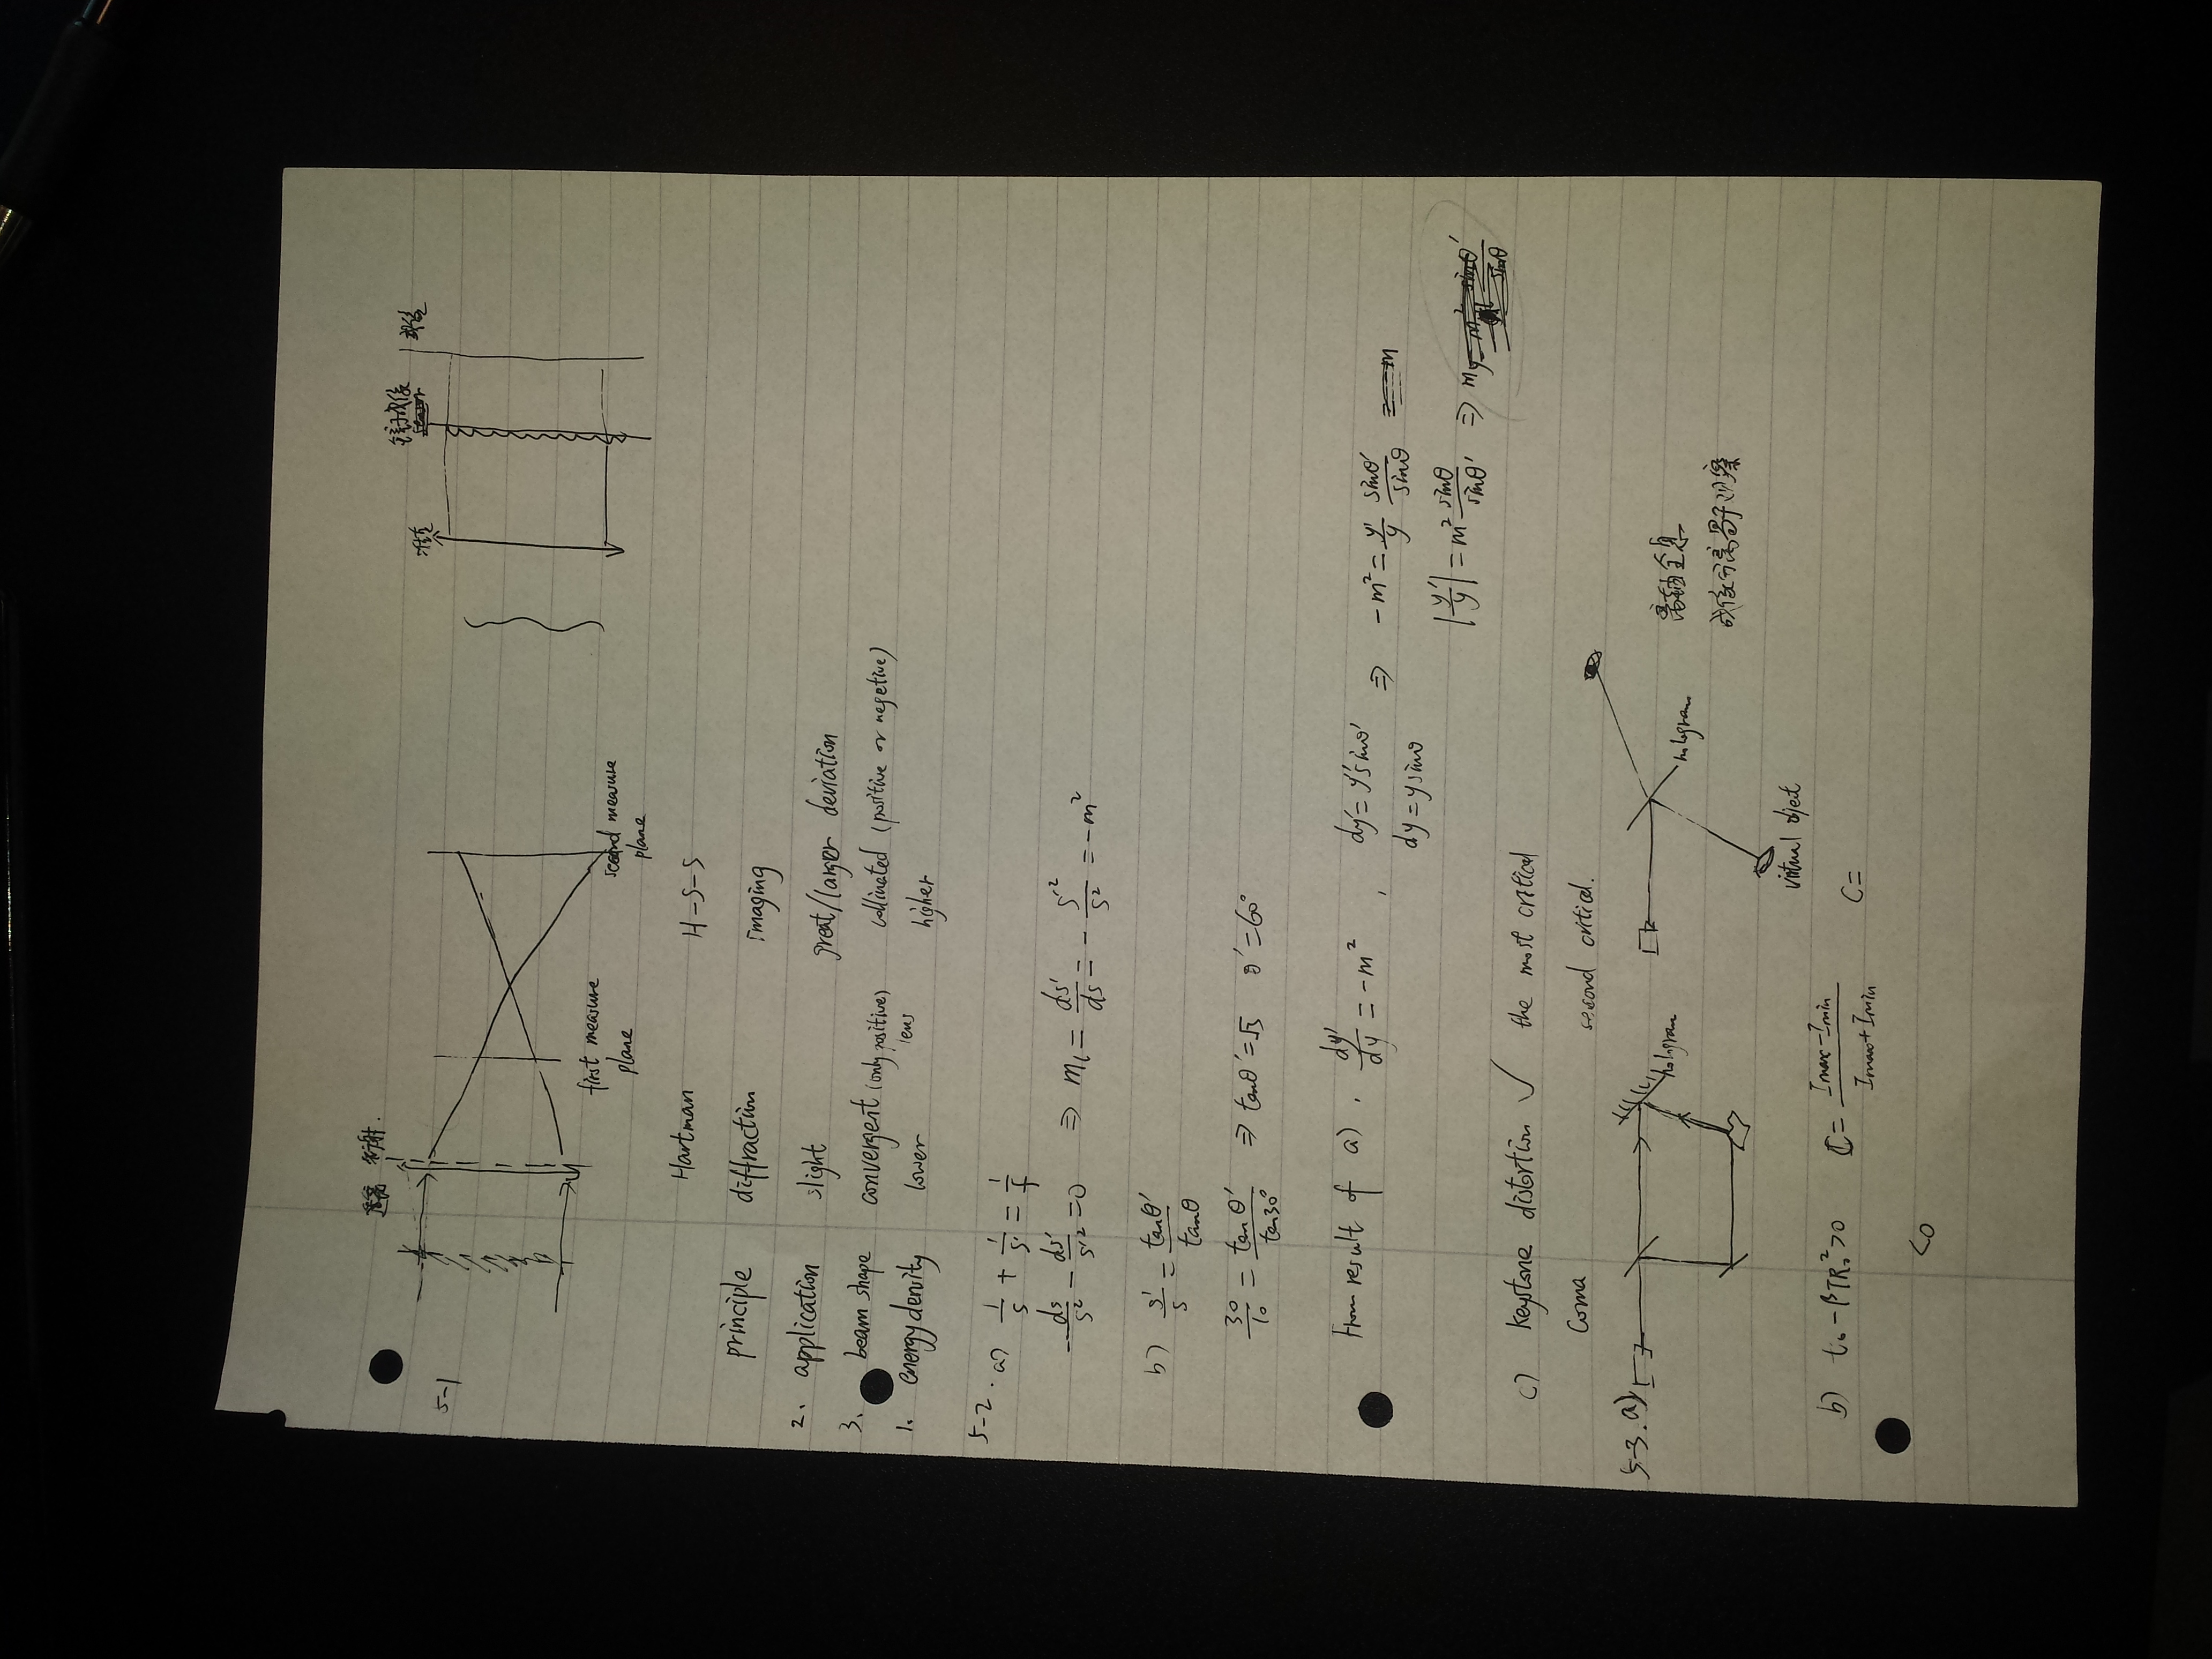 5-1
衍射.
first measure
plane
second measure
plane
Hartman H-S-S
principle diffraction imaging
2、 application slight great/larger deviation
3、 beam shape convergent (only positive) lens collimated (positive or negetive)
1、 energy density lower higher
5-2. a) 1/s + 1/s' = 1/f
-ds/s² - ds'/s'² = 0 ⇒ m₁ = ds'/ds = - s'²/s² = -m²
b) s'/s = tanθ'/tanθ
30/10 = tanθ'/tan30° ⇒ tanθ' = √3 θ' = 60°
From result of a), dy'/dy = -m² , dy' = y'sinθ' ⇒ -m² = y'/y sinθ'/sinθ
dy = y sinθ |y'/y| = m² sinθ/sinθ' ⇒
c) keystone distortion ✓ the most critical
Coma second critical.
5-3. a)
hologram
hologram
virtual object
离轴全息
成像分离易于观察
b) t₀ - βTR₀² > 0 C = Imax - Imin / Imax + Imin C =
< 0